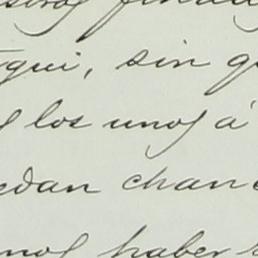 aqui, sin q
los unos á
edan chan
nos haber